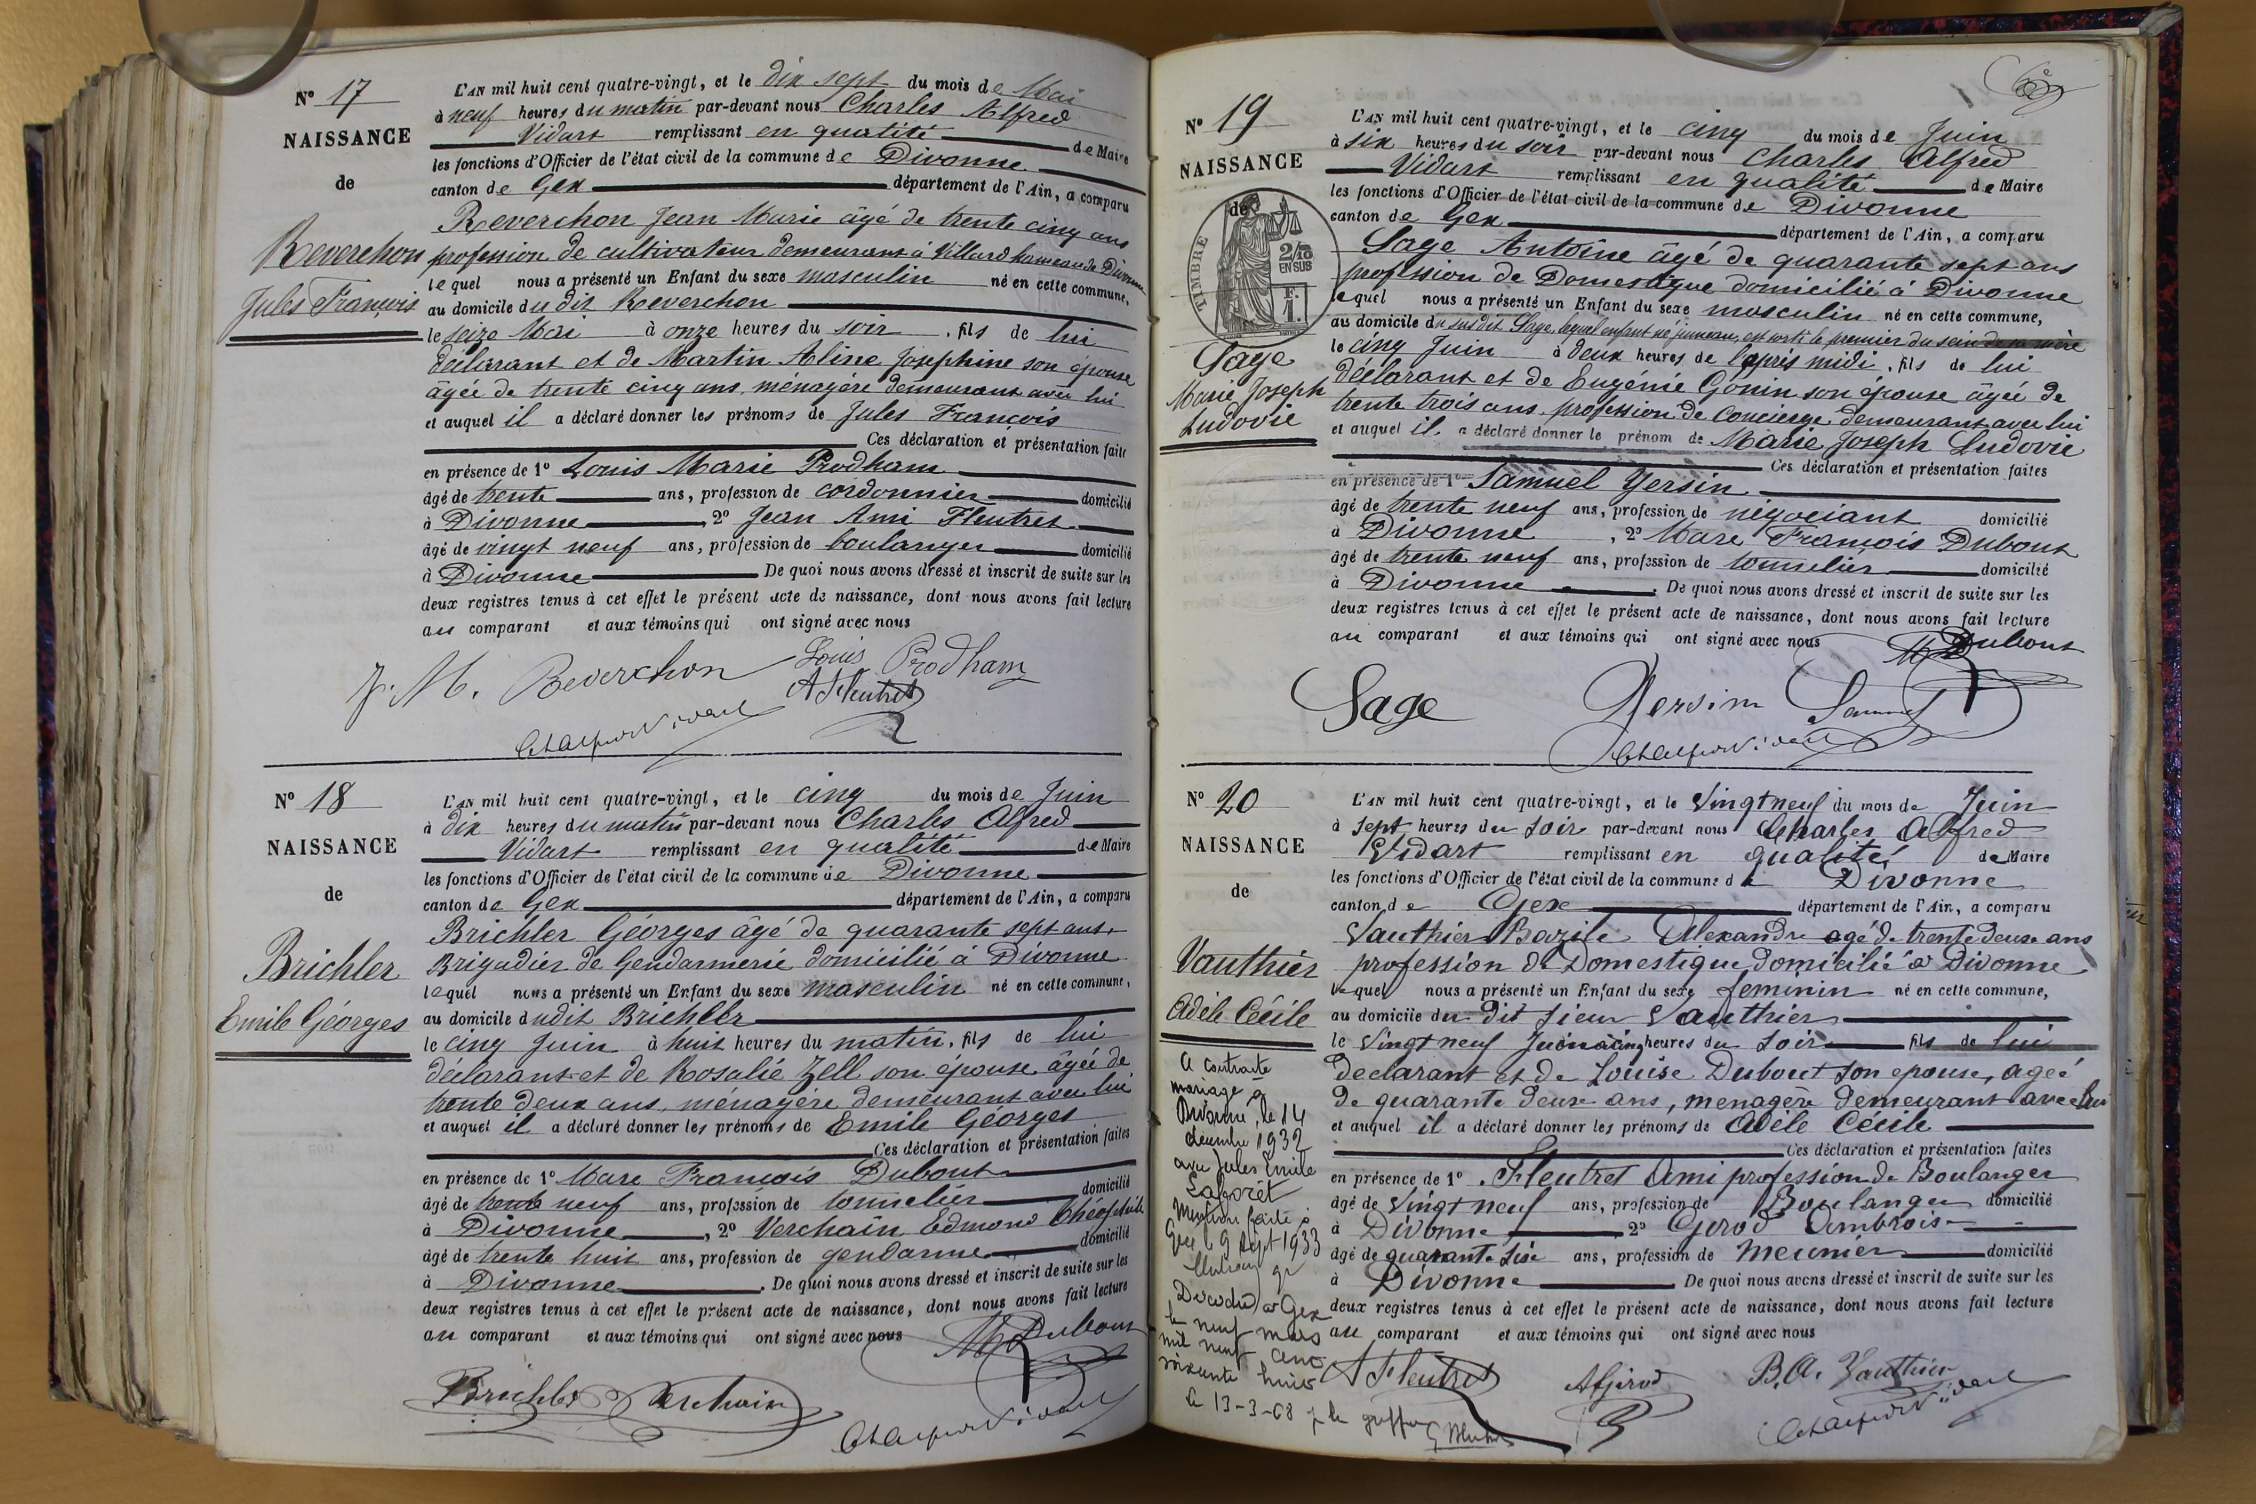 N° 17
NAISSANCE
de
Reverchon
Jules François
L'AN mil huit cent quatre-vingt, et le dix sept du mois de Mai
à neuf heures du matin par-devant nous Charles Alfred
Vidart remplissant en qualité de Maire
les fonctions d'Officier de l'état civil de la commune de Divonne
canton de Gex département de l'Ain, a comparu
Reverchon Jean Marie âgé de trente cinq ans
profession de cultivateur demeurant à Villard hameau de Divonne
lequel nous a présenté un Enfant du sexe masculin né en cette commune,
au domicile du dit Reverchon
le seize Mai à onze heures du soir, fils de lui
déclarant et de Martin Aline Josephine son épouse
âgée de trente cinq ans, ménagère demeurant avec lui
et auquel il a déclaré donner les prénoms de Jules François
Ces déclaration et présentation faite
en présence de 1° Louis Marie Prodham
âgé de trente ans, profession de cordonnier domicilié
à Divonne, 2° Jean Ami Fleutret
âgé de vingt neuf ans, profession de boulanger domicilié
à Divonne De quoi nous avons dressé et inscrit de suite sur les
deux registres tenus à cet effet le présent acte de naissance, dont nous avons fait lecture
au comparant et aux témoins qui ont signé avec nous
J. M. Reverchon Louis Prodham
A Fleutret
N° 18
NAISSANCE
de
Brichler
Emile Géorges
L'AN mil huit cent quatre-vingt, et le cinq du mois de Juin
à dix heures du matin par-devant nous Charles Alfred
Vidart remplissant en qualité de Maire
les fonctions d'Officier de l'état civil de la commune de Divonne
canton de Gex département de l'Ain, a comparu
Brichler Géorges âgé de quarante sept ans,
Brigadier de Gendarmerie domicilié à Divonne
lequel nous a présenté un Enfant du sexe masculin né en cette commune,
au domicile dudit Brichler
le cinq Juin à huit heures du matin, fils de lui
déclarant et de Rosalie Zell son épouse âgée de
trente deux ans, ménagère demeurant avec lui
et auquel il a déclaré donner les prénoms de Emile Géorges
Ces déclaration et présentation faites
en présence de 1° Marc François Dubout
âgé de trente neuf ans, profession de tonnelier domicilié
à Divonne, 2° Verchain Edmond Théophile
âgé de trente huit ans, profession de gendarme domicilié
à Divonne. De quoi nous avons dressé et inscrit de suite sur les
deux registres tenus à cet effet le présent acte de naissance, dont nous avons fait lecture
au comparant et aux témoins qui ont signé avec nous
Dubout
Brichler Verchain
N° 19
NAISSANCE
de
TIMBRE
2/10
EN SUS
F.
1.
Sage
Marie Joseph
Ludovie
L'AN mil huit cent quatre-vingt, et le cinq du mois de Juin
à six heures du soir par-devant nous Charles Alfred
Vidart remplissant en qualité de Maire
les fonctions d'Officier de l'état civil de la commune de Divonne
canton de Gex département de l'Ain, a comparu
Sage Antoine âgé de quarante sept ans
profession de Domestique domicilié à Divonne
lequel nous a présenté un Enfant du sexe masculin né en cette commune,
au domicile du susdit Sage, lequel enfant né jumeau, est sorti le premier du sein de sa mère
le cinq Juin à deux heures de l'après midi, fils de lui
déclarant et de Eugénie Gonin son épouse âgée de
trente trois ans, profession de concierge demeurant avec lui
et auquel il a déclaré donner le prénom de Marie Joseph Ludovie
Ces déclaration et présentation faites
en présence de 1° Samuel Yersin
âgé de trente neuf ans, profession de négociant domicilié
à Divonne, 2° Marc François Dubout
âgé de trente neuf ans, profession de tonnelier domicilié
à Divonne. De quoi nous avons dressé et inscrit de suite sur les
deux registres tenus à cet effet le présent acte de naissance, dont nous avons fait lecture
au comparant et aux témoins qui ont signé avec nous
Dubout
Sage Yersin Samuel
N° 20
NAISSANCE
de
Vauthier
Adèle Cécile
A contracté
mariage à
Divonne, le 14
décembre 1932
avec Jules Emile
Laforêt
Mention faite à
Gex le 9 sept 1933
Décédée à Gex
le neuf mars
mil neuf cent
soixante huit
Le 13-3-68
L'AN mil huit cent quatre-vingt, et le Vingt neuf du mois de Juin
à sept heures du soir par-devant nous Charles Alfred
Vidart remplissant en qualité de Maire
les fonctions d'Officier de l'état civil de la commune de Divonne
canton de Gex département de l'Ain, a comparu
Vauthier Bazile Alexandre agé de trente deux ans
profession de Domestique domicilié à Divonne
lequel nous a présenté un Enfant du sexe feminin né en cette commune,
au domicile du dit sieur Vauthier
le Vingt neuf Juin à cinq heures du soir fils de lui
declarant et de Louise Dubout son epouse, ageé
de quarante deux ans, menagère demeurant avec lui
et auquel il a déclaré donner les prénoms de Adèle Cécile
Ces déclaration et présentation faites
en présence de 1°. Fleutret Ami profession de Boulanger
âgé de Vingt neuf ans, profession de Boulanger domicilié
à Divonne 2° Girod Ambroise
âgé de quarante six ans, profession de meunier domicilié
à Divonne De quoi nous avons dressé et inscrit de suite sur les
deux registres tenus à cet effet le présent acte de naissance, dont nous avons fait lecture
au comparant et aux témoins qui ont signé avec nous
A Fleutret A Girod B. A. Vauthier